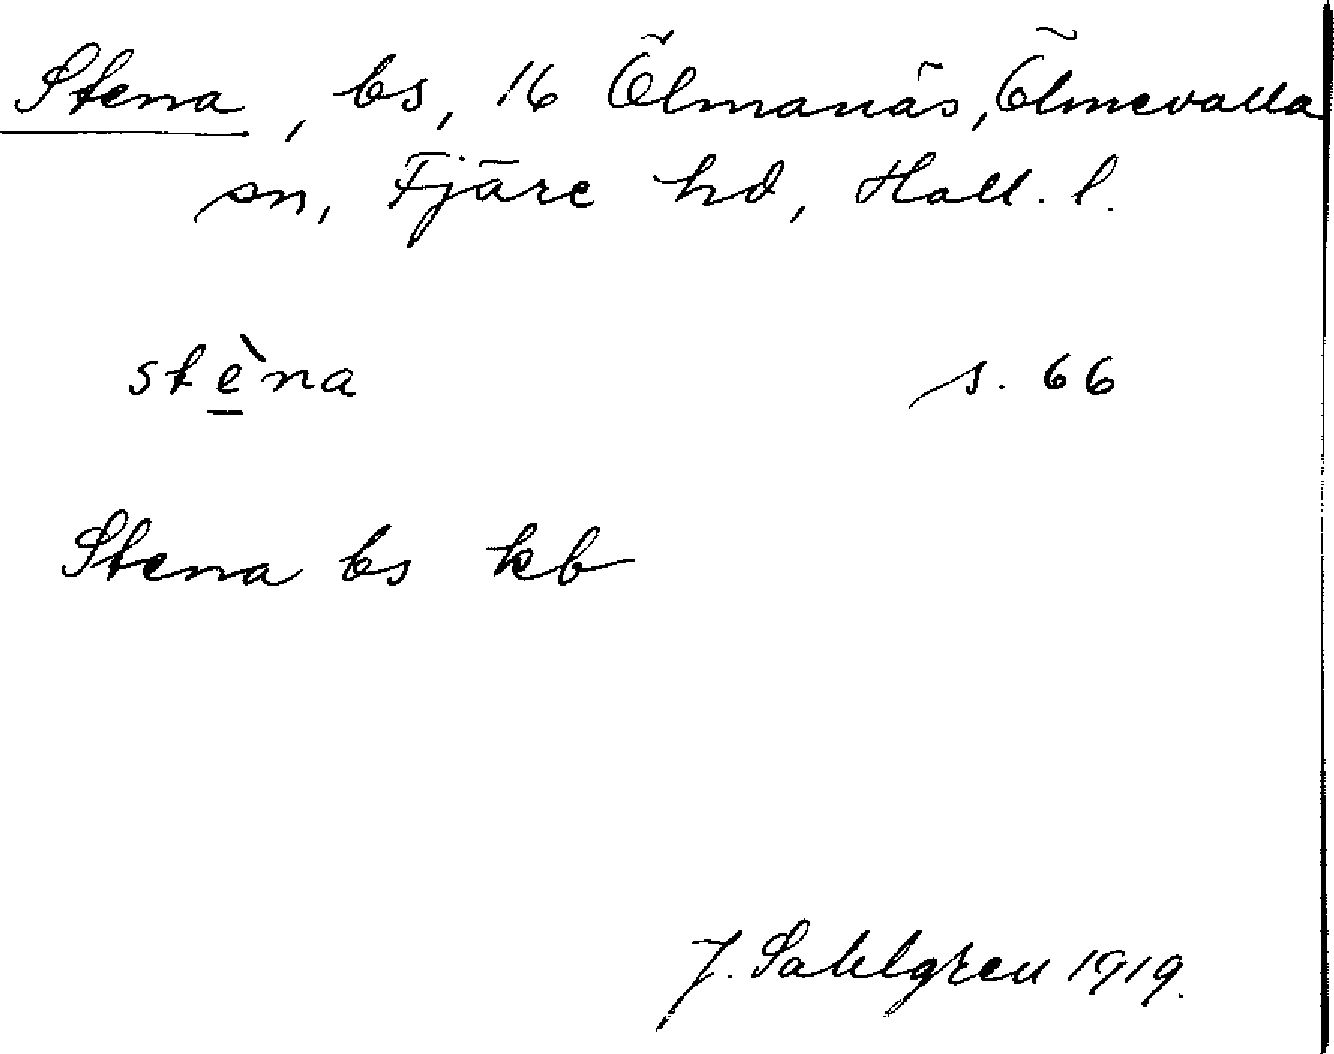 Stena, bs, 16 Ölmanäs, Ölmevalla
sn, Fjäre hd, Hall. l.
stèna s. 66
Stena bs kb
J. Sahlgren 1919.